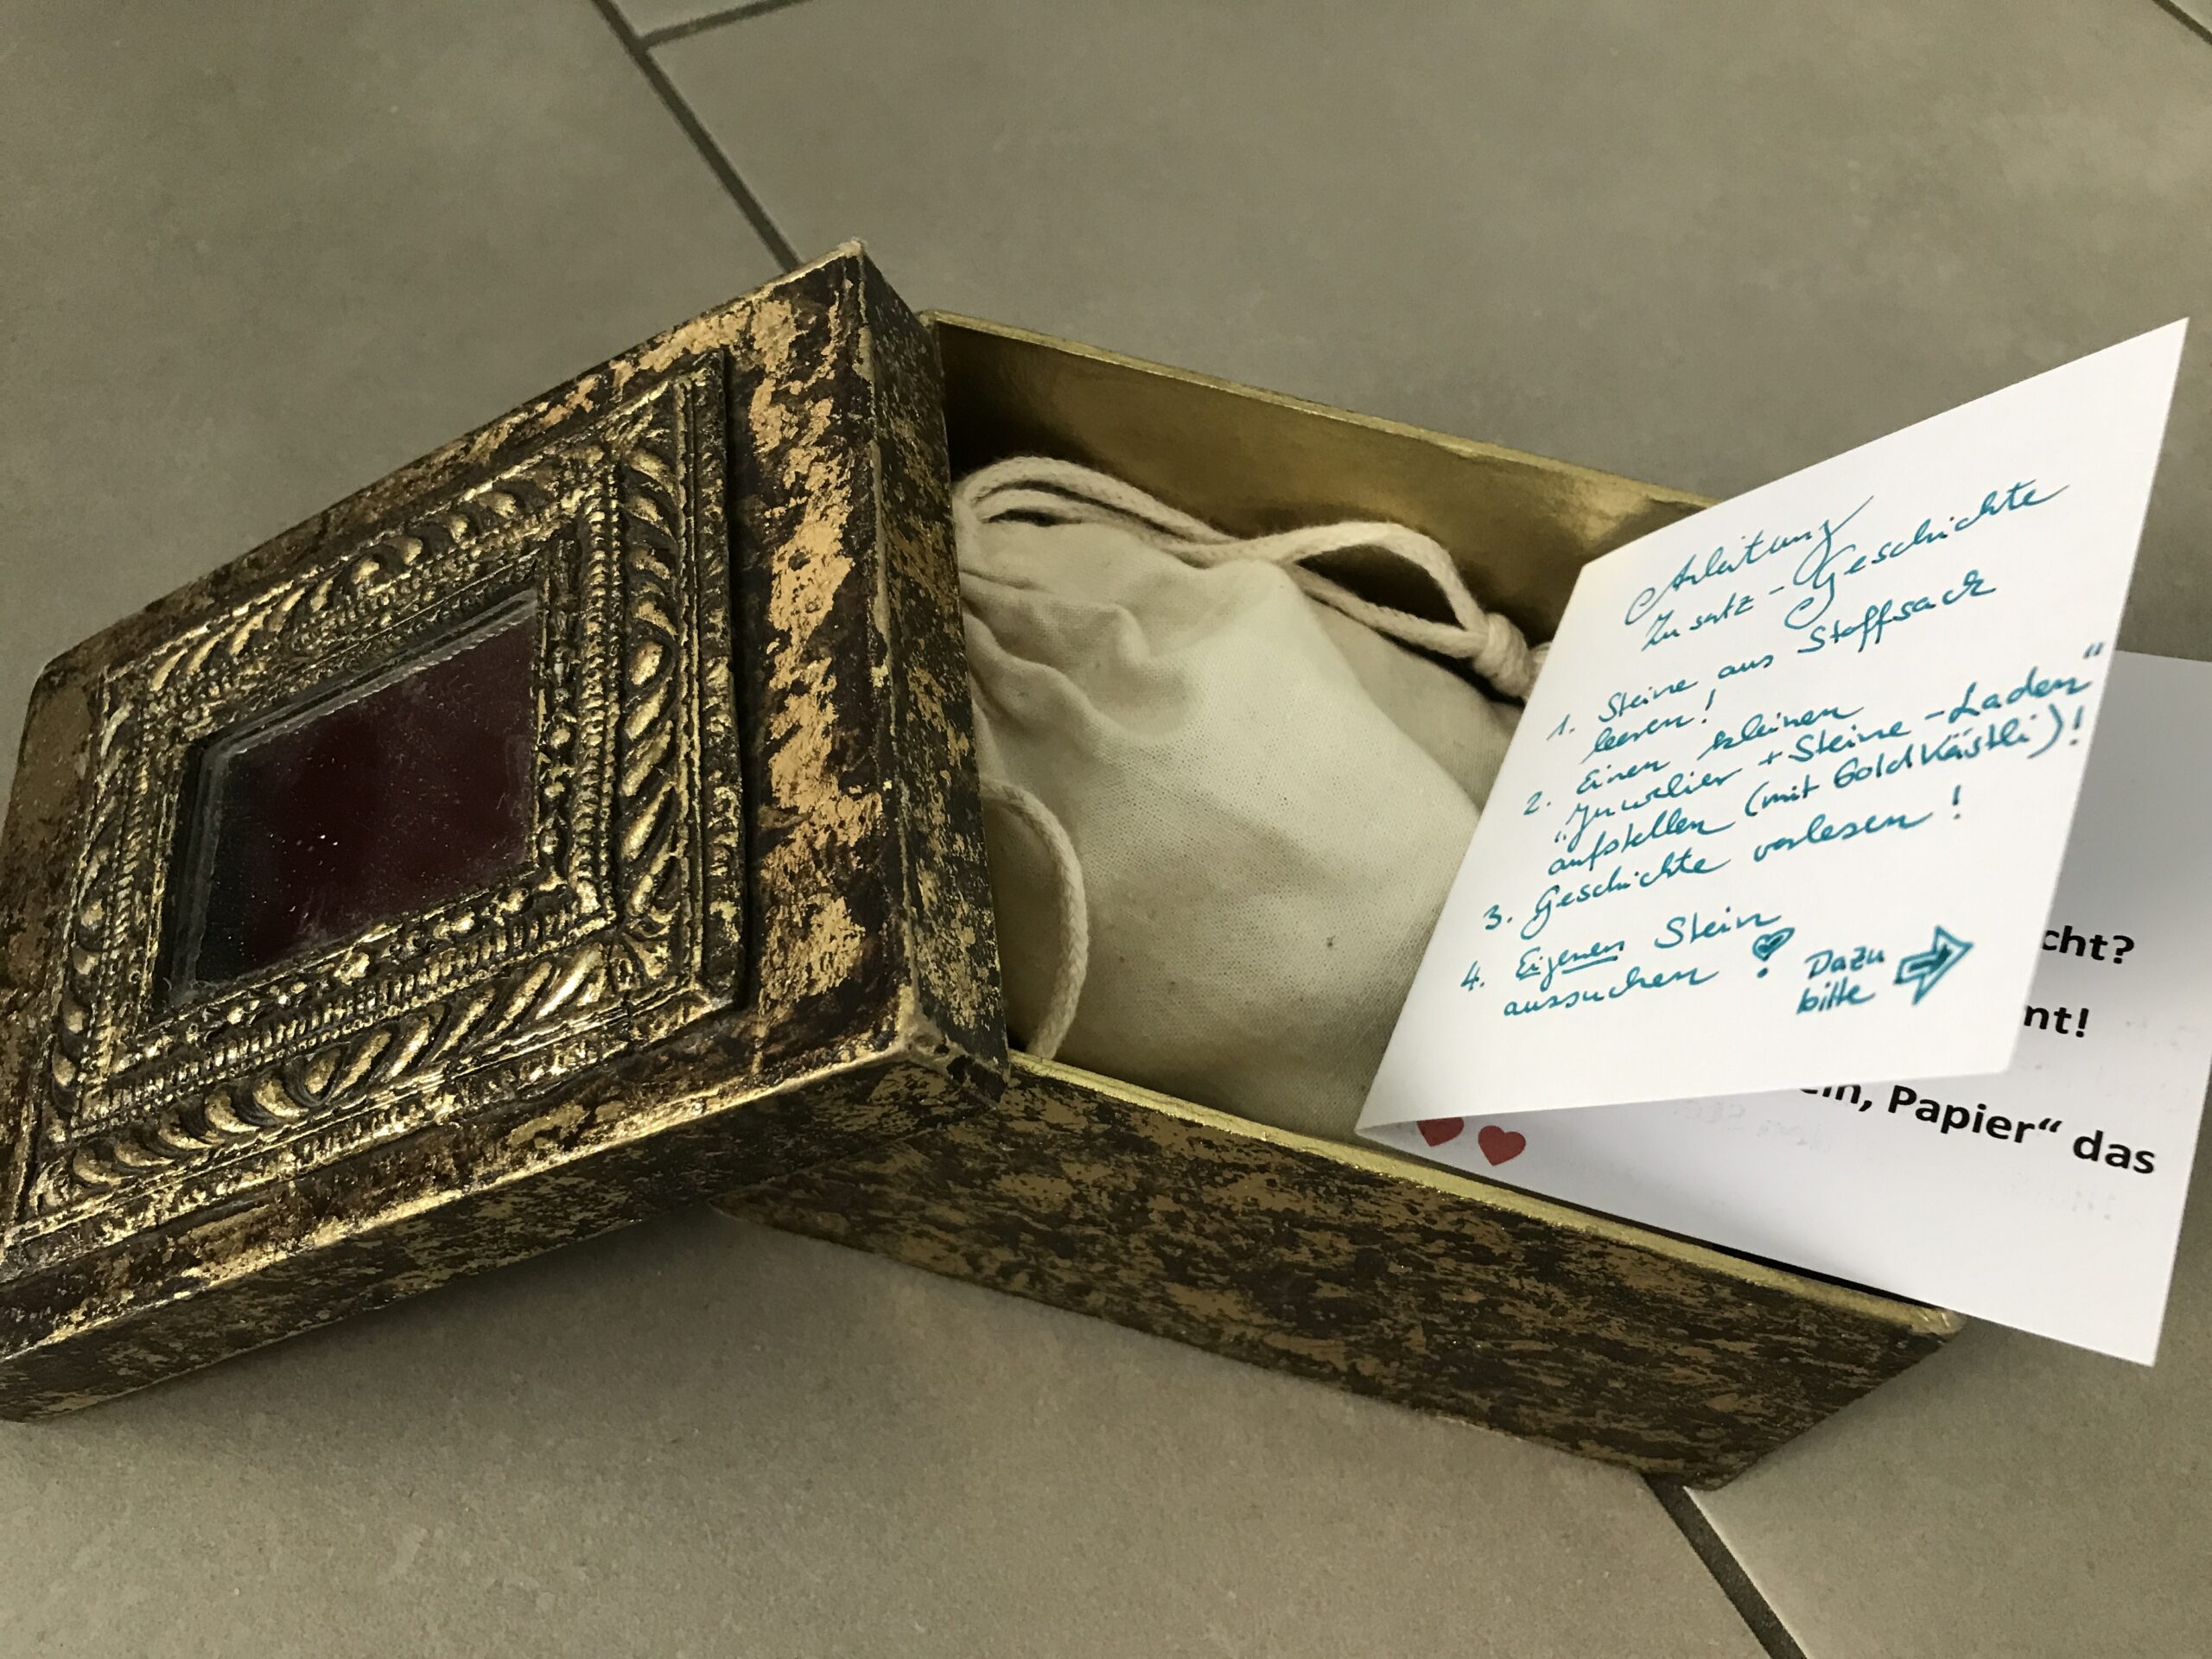 Anleitung
Zusatz-Geschichte
1. Steine aus Stoffsack
leeren!
2. Einen kleinen
"Juwelier + Steine-Laden"
aufstellen (mit Goldkästli)!
3. Geschichte vorlesen!
4. Eigenen Stein
aussuchen!
Dazu
bitte
cht?
nt!
ein, Papier“ das